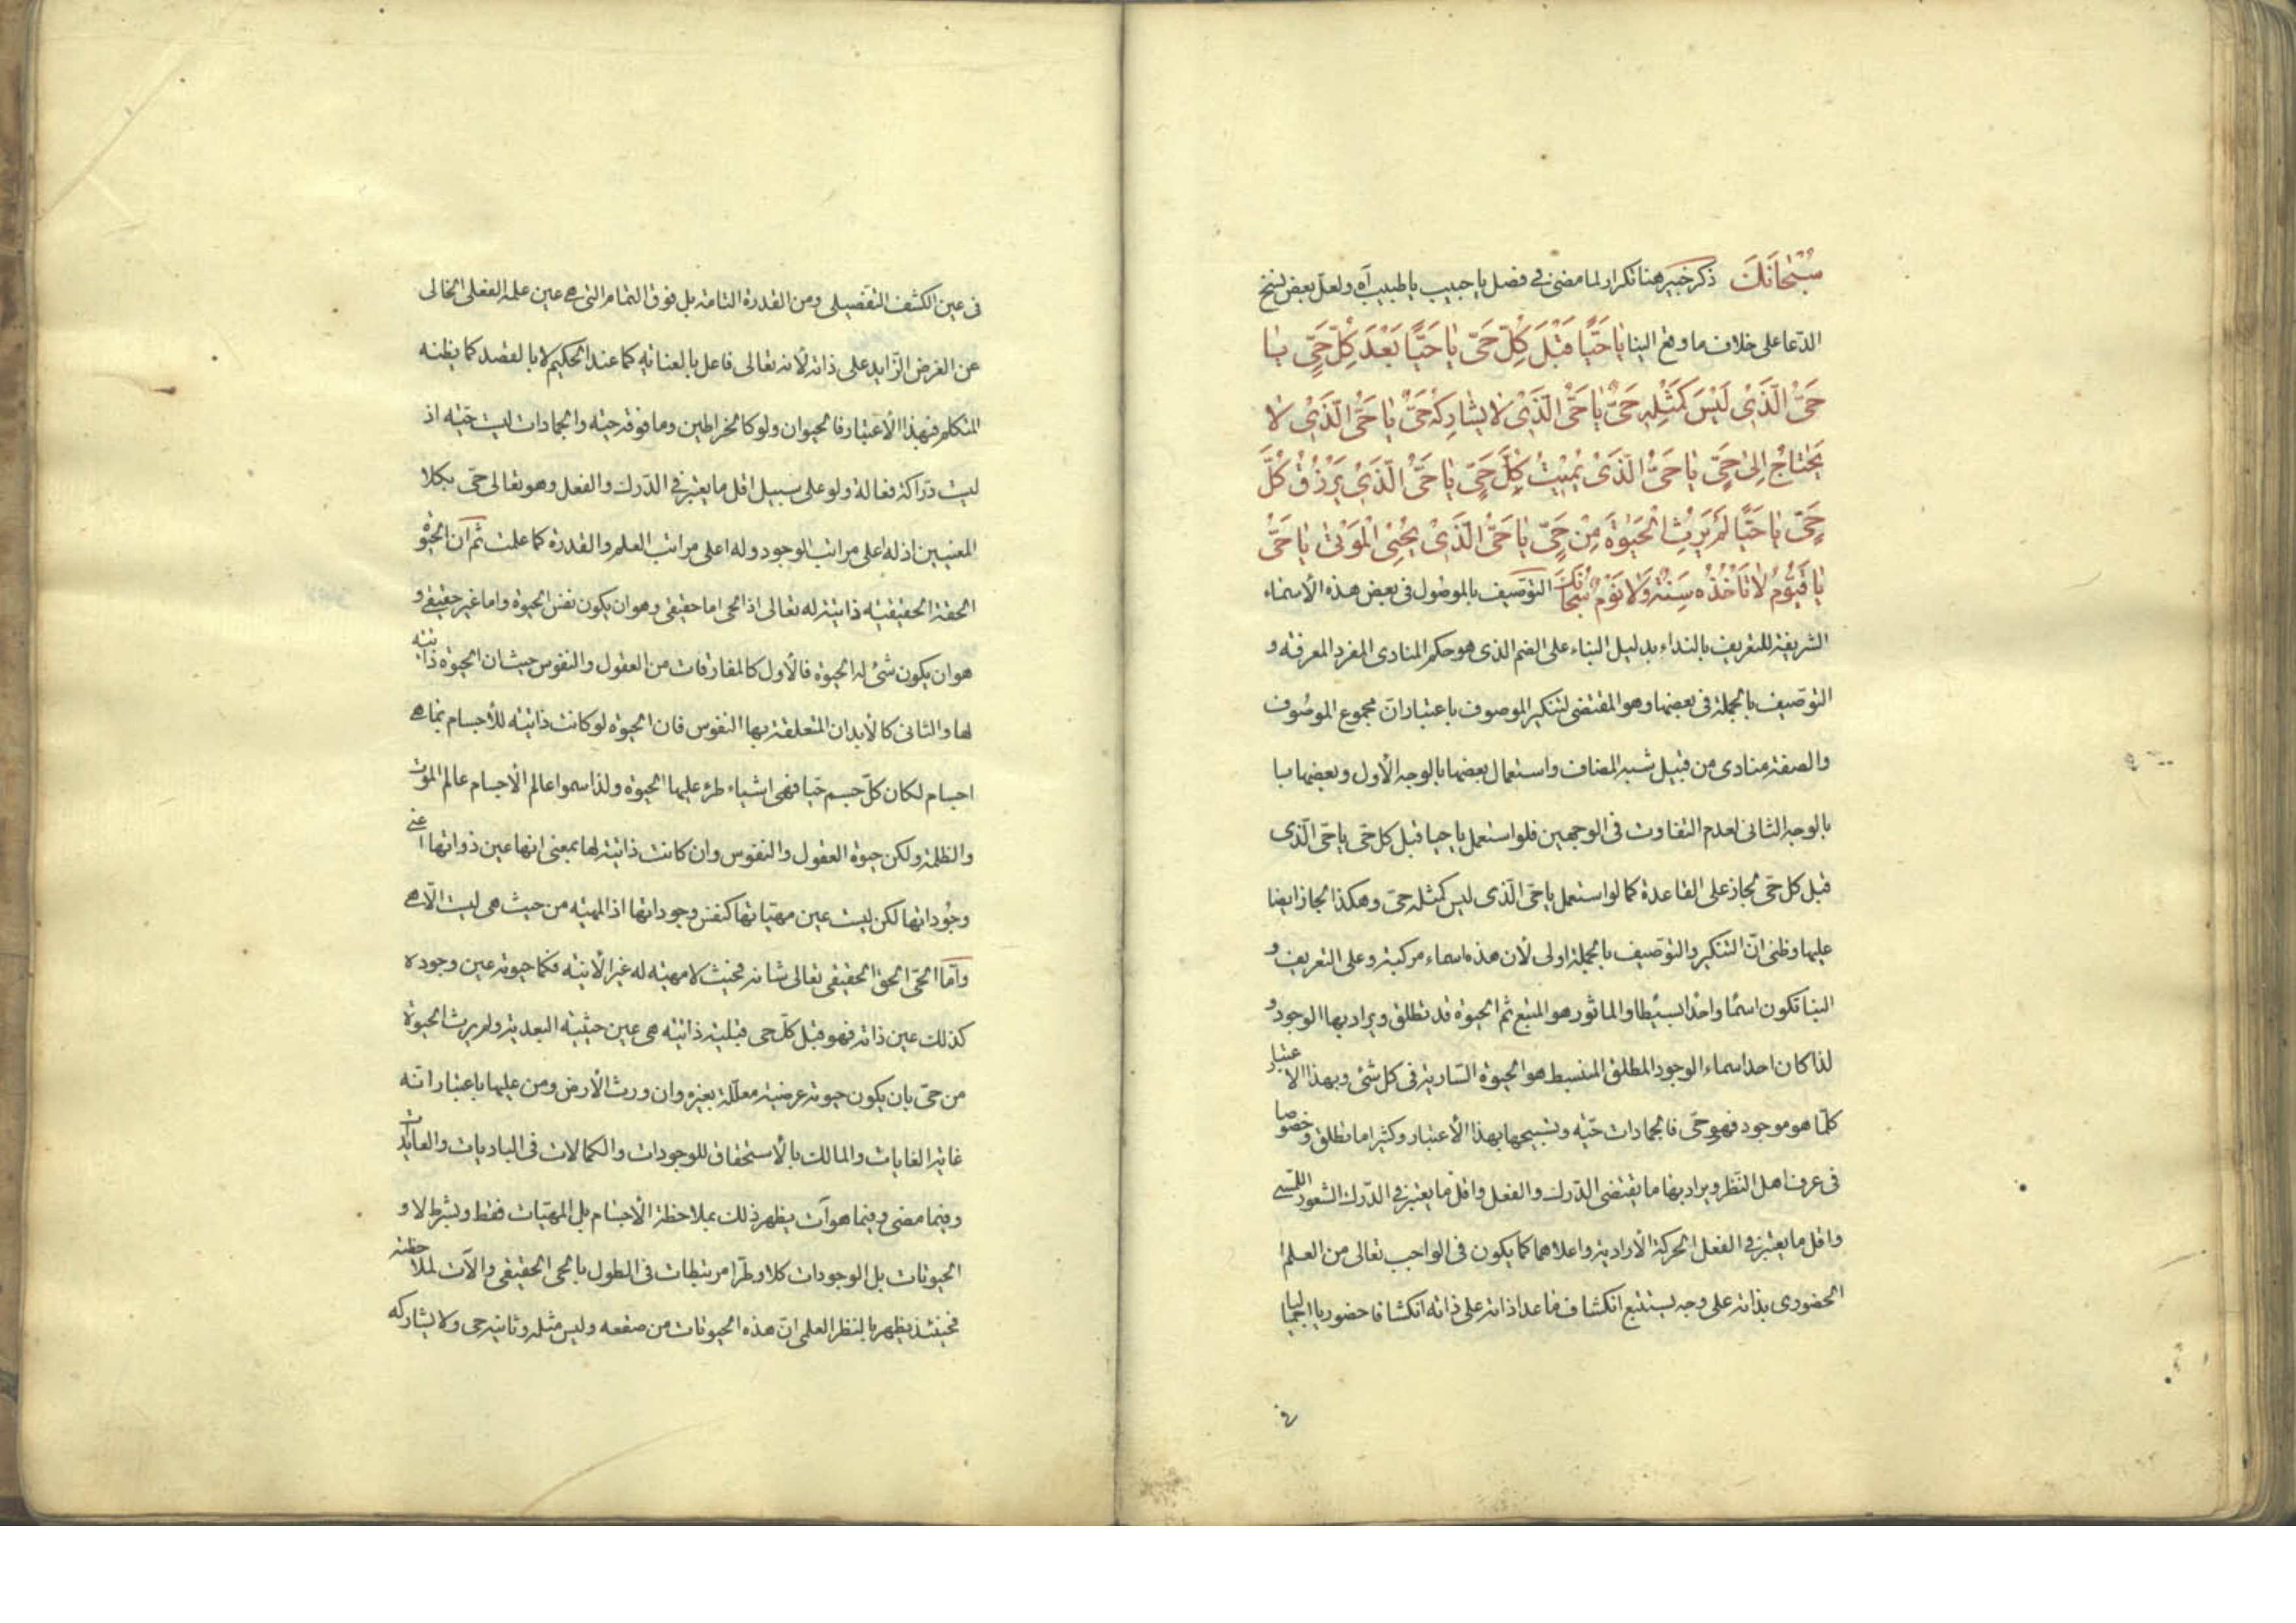 سُبْحَانَكَ ذكر خبير هنا تكرار لما مضى في فصل يا حبيب يا طبيب آه ولعل بعض نسخ
الدّعا على خلاف ما وقع الينا يَا حَيًّا قَبْلَ كُلِّ حَيٍّ يَا حَيًّا بَعْدَ كُلِّ حَيٍّ يَا
حَيُّ الَّذِي لَيْسَ كَمِثْلِهِ حَيٌّ يَا حَيُّ الَّذِي لَا يُشَارِكُهُ حَيٌّ يَا حَيُّ الَّذِي لَا
يَحْتَاجُ اِلىٰ حَيٍّ يَا حَيُّ الَّذِي يُمِيتُ كُلَّ حَيٍّ يَا حَيُّ الَّذِي يَرْزُقُ كُلَّ
حَيٍّ يَا حَيًّا لَمْ يَرِثِ الْحَيٰوةَ مِنْ حَيٍّ يَا حَيُّ الَّذِي يُحْيِي الْمَوْتىٰ يَا حَيُّ
يَا قَيُّومُ لَا تَأْخُذُهُ سِنَةٌ وَلَا نَوْمٌ سُبْحَانَكَ التوصيف بالموصول في بعض هذه الأسماء
الشريفة للتعريف بالنداء بدليل البناء على الضم الذى هو حكم المنادى المفرد المعرفة و
التوصيف بالجملة فى بعضها وهو المقتضى لتنكير الموصوف باعتبار ان مجموع الموصوف
والصفة منادى من قبيل شبه المضاف واستعمال بعضها بالوجه الأول وبعضها با
بالوجه الثانى لعدم التفاوت فى الوجهين فلو استعمل يا حيا قبل كل حى يا حى الّذى
قبل كل حى لجاز على القاعدة كما لو استعمل يا حى الّذى ليس كمثله حى وهكذا لجاز ايضا
عليها وظنى انّ التنكير والتوصيف بالجملة اولى لأن هذه اسماء مركبة وعلى التعريف و
البنا تكون اسمًا واحدًا بسيطا والماثور هو المتبع ثم الحيوة قد تطلق ويراد بها الوجود و
لذا كان احد اسماء الوجود المطلق المنبسط هو الحيوة السّارية فى كل شئ وبهذا الاعتبار
كلّما هو موجود فهو حى فالجمادات حيّه وتسبيحها بهذا الأعتبار وكثيرا ما تطلق وخصوصا
فى عرف اهل النظر ويراد بها ما يقتضى الدّرك والفعل واقل ما يعتبر فى الدّرك الشعور اللمسى
واقل ما يعتبر فى الفعل الحركة الأرادية واعلاهما كما يكون فى الواجب تعالى من العلم ا
الحضورى بذاته على وجه يستتبع انكشاف ما عدا ذاته على ذاته انكشافا حضوريا اجماليا
فى عين الكشف التفصيلى ومن القدرة التامة بل فوق التمام التى هى عين علمه الفعلى الخالى
عن الغرض الزّايد على ذاته لأنه تعالى فاعل بالعنايه كما عند الحكيم لا بالقصد كما يظنه
المتكلم فبهذا الأعتبار فالحيوان ولو كالخراطين وما فوقه حيّه والجمادات ليست حيّه اذ
ليست درّاكة فعالة ولو على سبيل اقل ما يعتبر فى الدّرك والفعل وهو تعالى حى بكلا
المعنيين اذ له اعلى مراتب الوجود وله اعلى مراتب العلم والقدرة كما علمت ثم ان الحيوة
الحقة الحقيقيه ذاتية له تعالى اذ الحى اما حقيقى وهو ان يكون نفس الحيوة واما غير حقيقى و
هو ان يكون شئ له الحيوة فالأول كالمفارقات من العقول والنفوس حيث ان الحيوة ذاتية
لها والثانى كالأبدان المتعلقة بها النفوس فان الحيوة لو كانت ذاتيه للأجسام بما هى
اجسام لكان كلّ جسم حيّا فهى اشياء طرء عليها الحيوة ولذا سموا عالم الأجسام عالم الموت
والظلمة ولكن حيوة العقول والنفوس وان كانت ذاتية لها بمعنى انها عين ذواتها اعنى
وجوداتها لكن ليست عين مهيّاتها كنفس وجوداتها اذ المهيّه من حيث هى ليست الّا هى
وامّا الحىّ الحق الحقيقى تعالى شانه فحيث لا مهيّه له غير الأنيّه فكما حيوته عين وجوده
كذلك عين ذاته فهو قبل كلّ حى قبلية ذاتيه هى عين حيثيه البعدية ولم يرث الحيوة
من حىّ بان يكون حيوته عرضية معللة بغيره وان ورث الأرض ومن عليها باعتبار انه
غاية الغايات والمالك بالأستحقاق للوجودات والكمالات فى الباديات والعايدات
وفيما مضى وفيما هو آت يظهر ذلك بملاحظة الأجسام بل المهيّات فقط وبشرط لا و
الحيوتات بل الوجودات كلا وطرّا مرتبطات فى الطول بالحى الحقيقى والآت لملاحظته
فحينئذ يظهر بالنظر العلمى انّ هذه الحيوتات من صقعه وليس مثله وثانيه حى ولا يشاركه